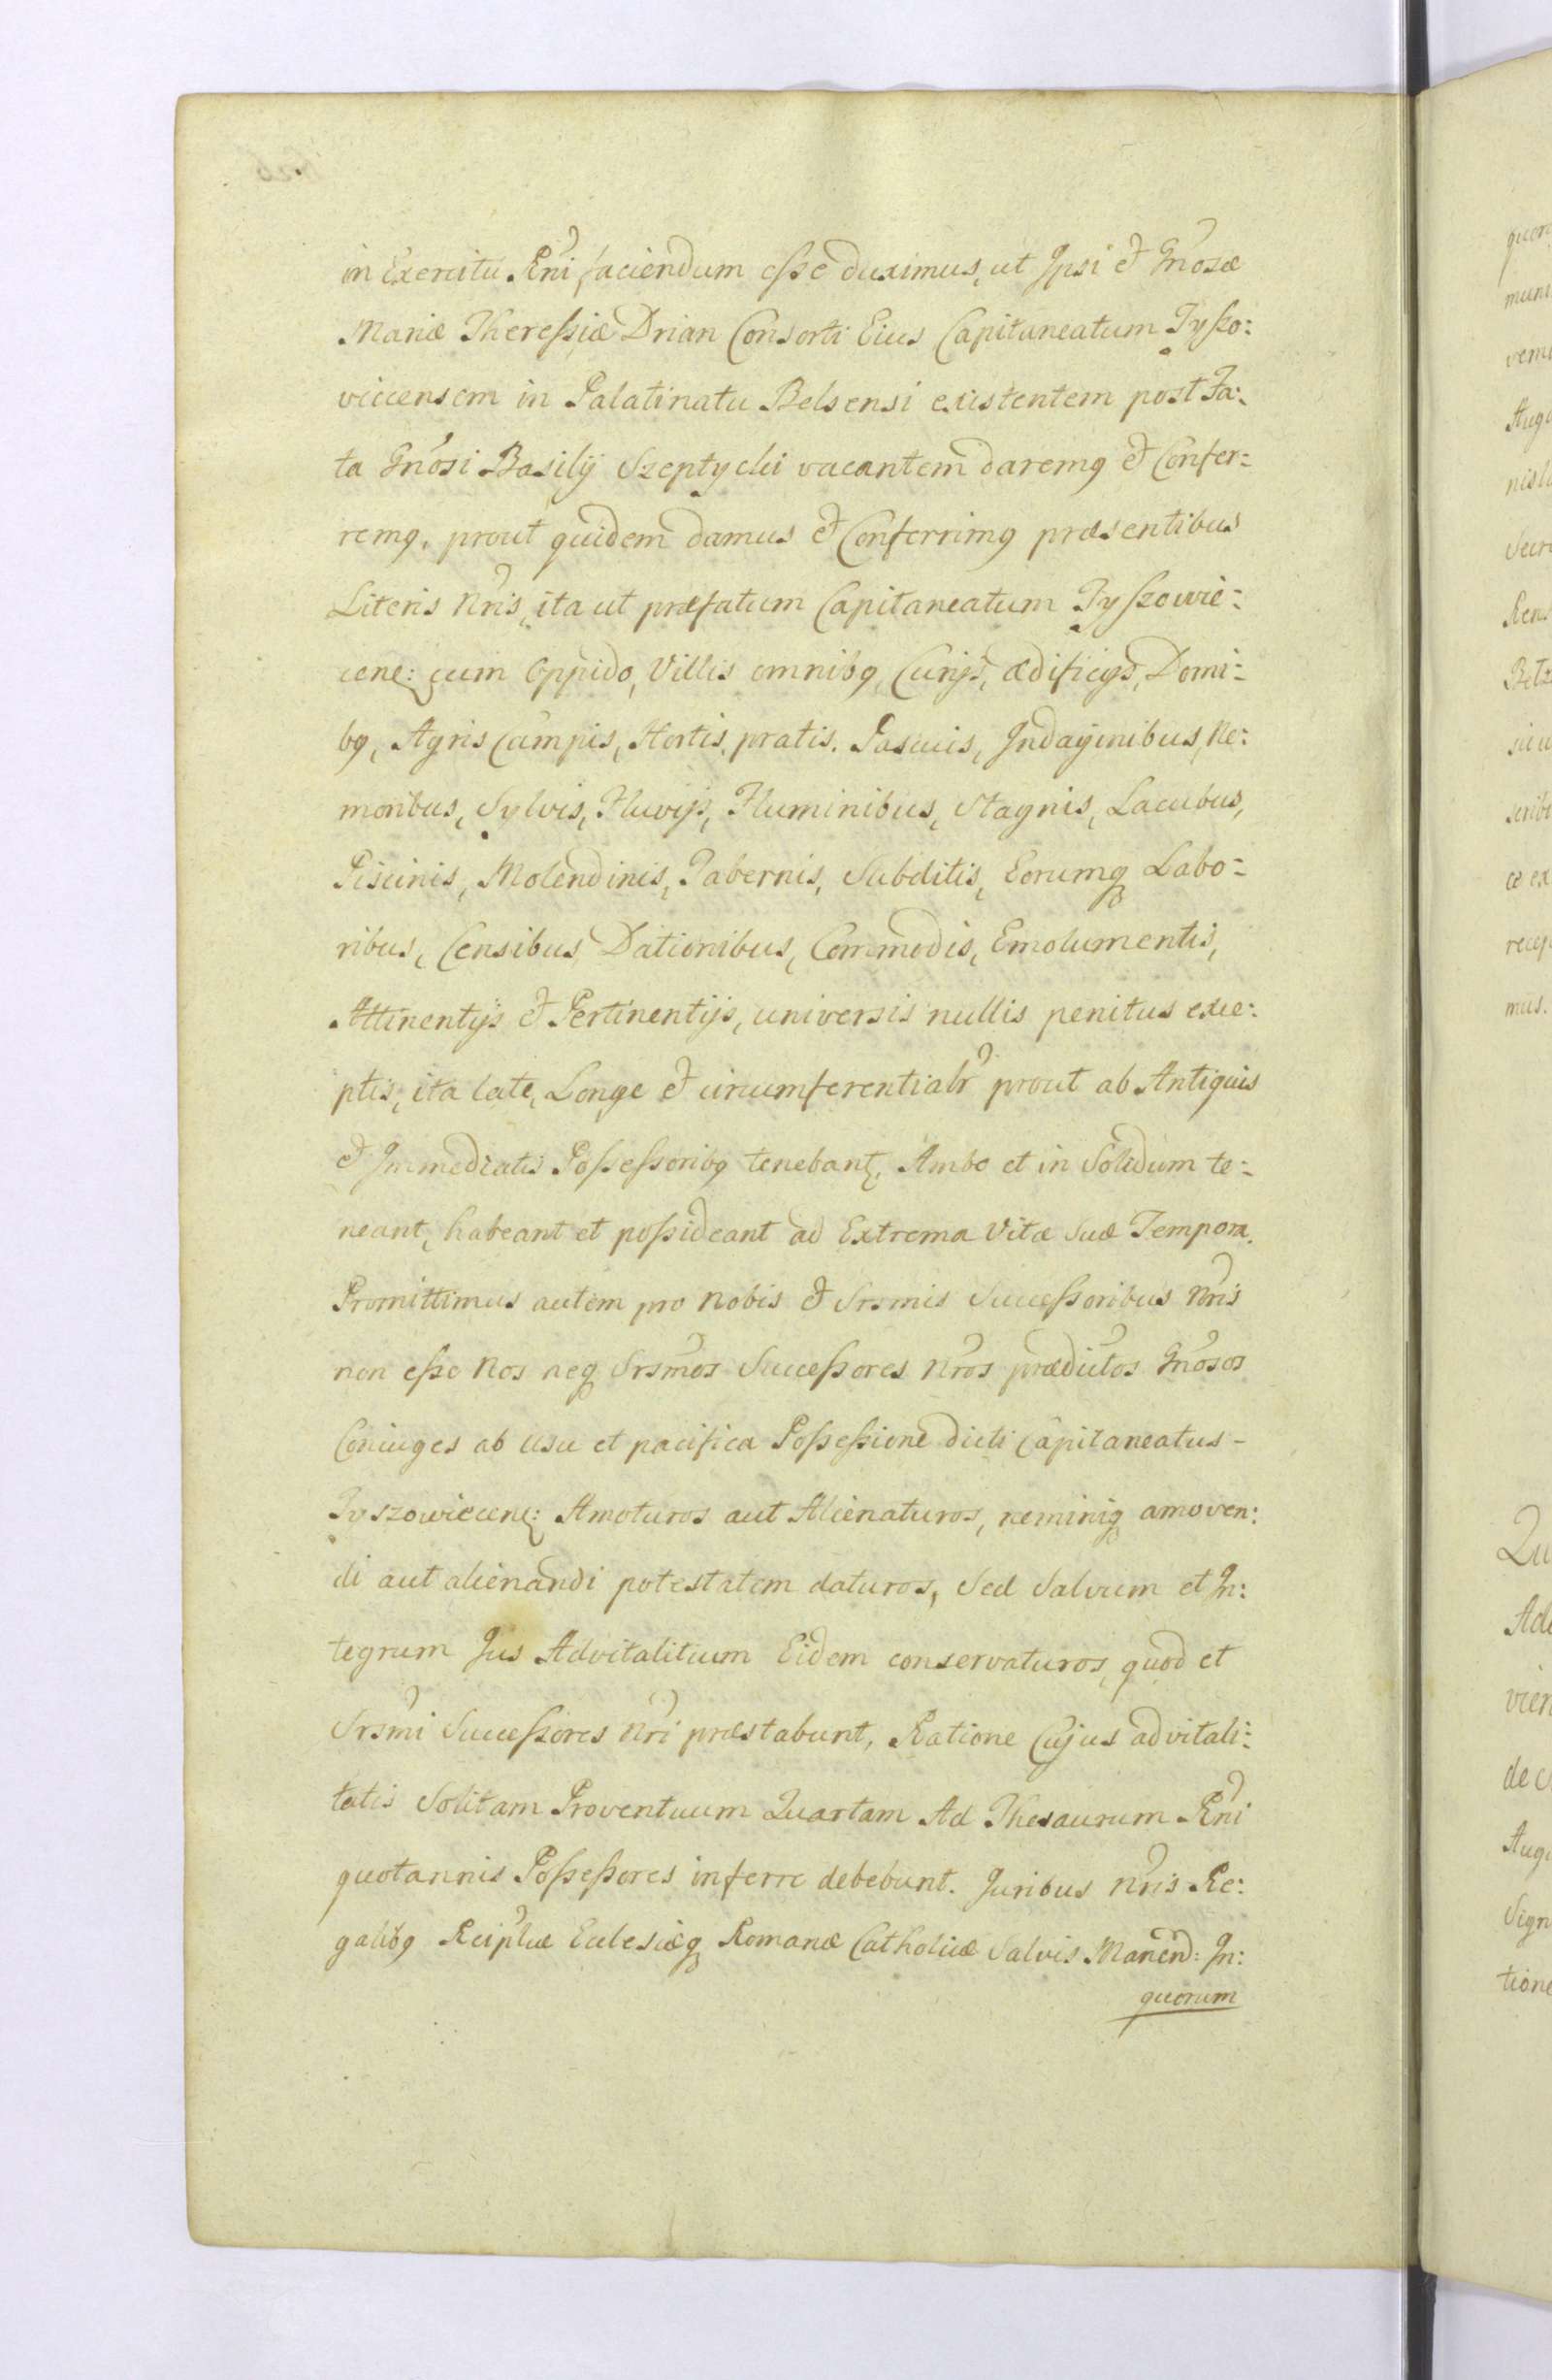 in Exercitu Rni faciendum esse duximus, ut Ipsi et Gnosæ
Mariæ Theressiæ Drian Consorti Eius Capitaneatum Tyszo:
viecensem in Palatinatu Belsensi existentem post Fa:
ta Gnosi Basilij Szeptycki vacantem daremq et Confer:
remq, prout quidem damus et Conferrimq præsentibus
Literis Nris, ita ut præfatum Capitaneatum Tyszowie:
cenę: cum Oppido, Villis omnibq, Curijs, ædificijs, Domi:
bq, Agris Campis, Hortis, pratis. Pascuis, Indaginibus, Ne:
moribus, Sylvis, Fluvijs, Fluminibus, Stagnis, Lacubus,
Piscinis, Molendinis, Tabernis, Subditis, Eorumq Labo:
ribus, Censibus Dationibus, Commodis, Emolumentis,
Attinentijs et Pertinentijs, universis nullis penitus exce:
ptis, ita late, Longe et circumferentialr prout ab Antiquis
et Immediatis Possessoribq tenebantę. Ambo et in Solidum te:
neant, habeant et possideant ad Extrema Vitæ suæ Tempora.
Promittimus autem pro Nobis et Srsmis Successoribus Nris
non esse Nos neq Srsmos Successores Nros prædictos Gnosos
Coniuges ab usu et pacifica Possessione dicti Capitaneatus -
Tyszowiecenę: Amoturos aut Alienaturos, neminiq amoven:
di aut alienandi potestatem daturos, Sed Salvum et In:
tegrum Jus Advitalitium Eidem conservaturos, quod et
Srsmi Successores Nri præstabunt, Ratione Cujus advitali:
tatis Solitam Proventuum Quartam Ad Thesaurum Rni
quotannis Possessores inferre debebunt. Juribus Nris Re:
galibq Reiplicæ Eclesiæq Romanæ Catholicæ Salvis Manend: In:
quorum